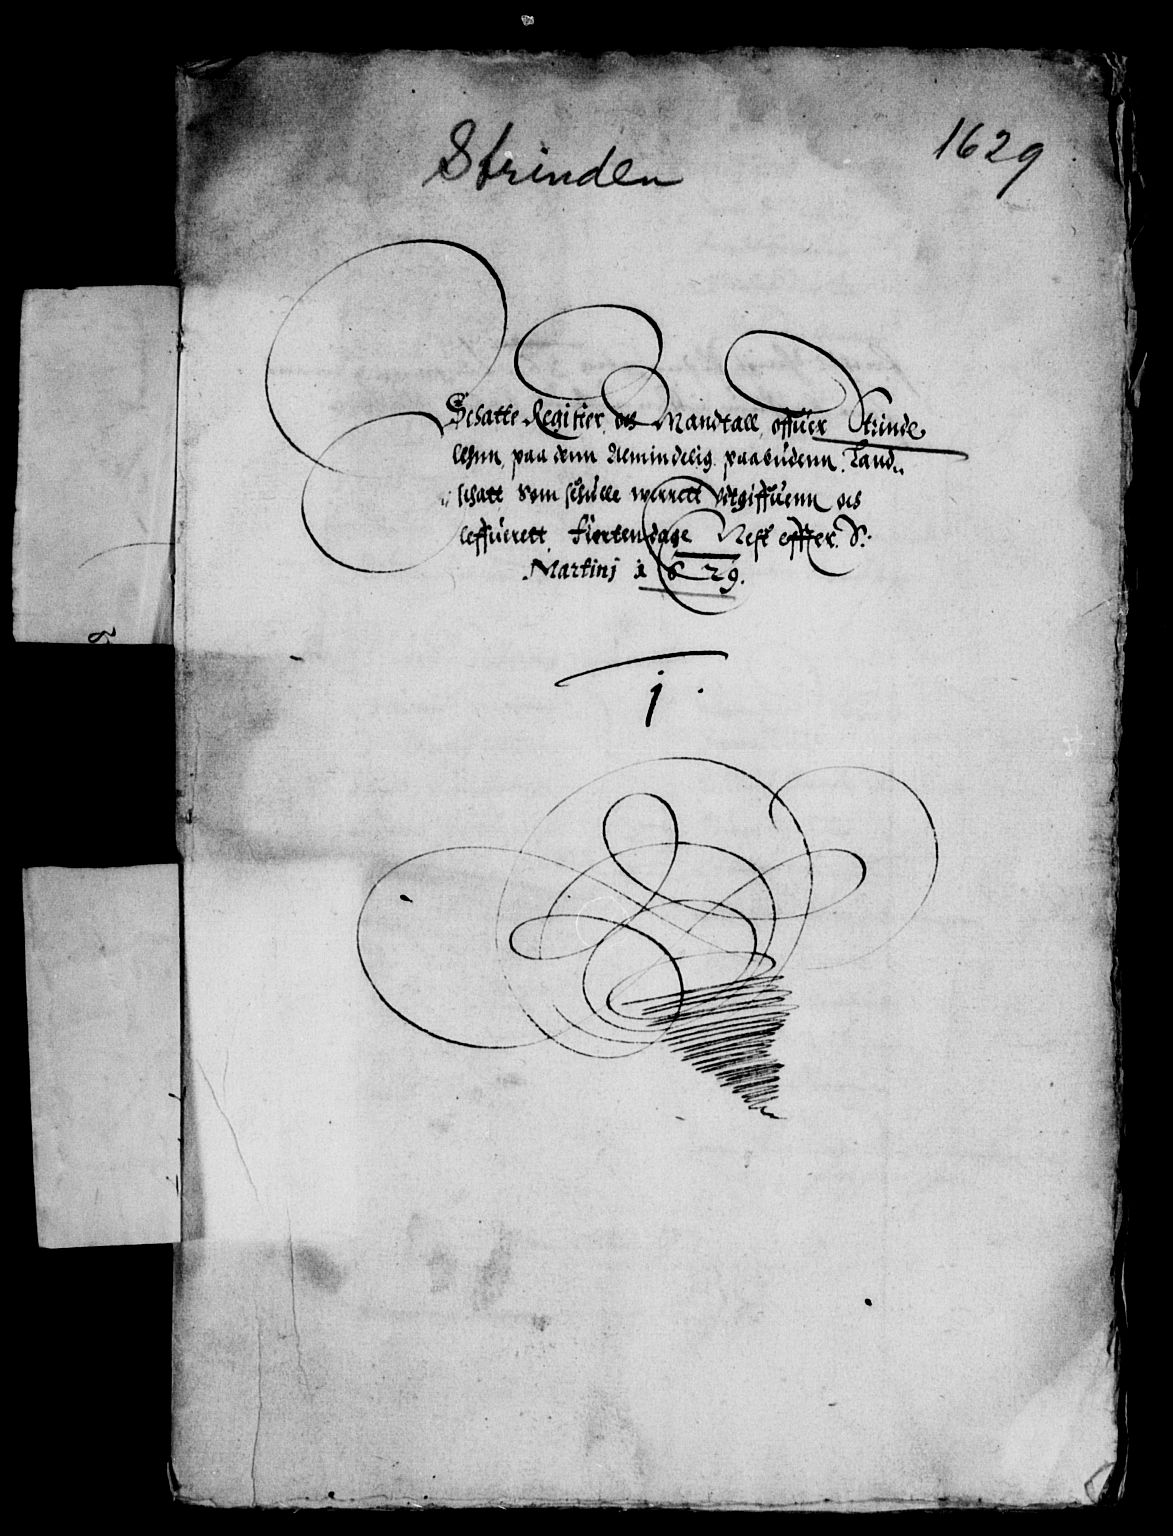 Strinden
1629
Schatte Register, och Mandtall, offuer Strinde
lehnn, paa denn Almindelig paabudenn Land„
schatt som schulle werrett Vdgiffuenn och
leffuerett fiortendage Nest effter S:
Martinj 1629.
j.